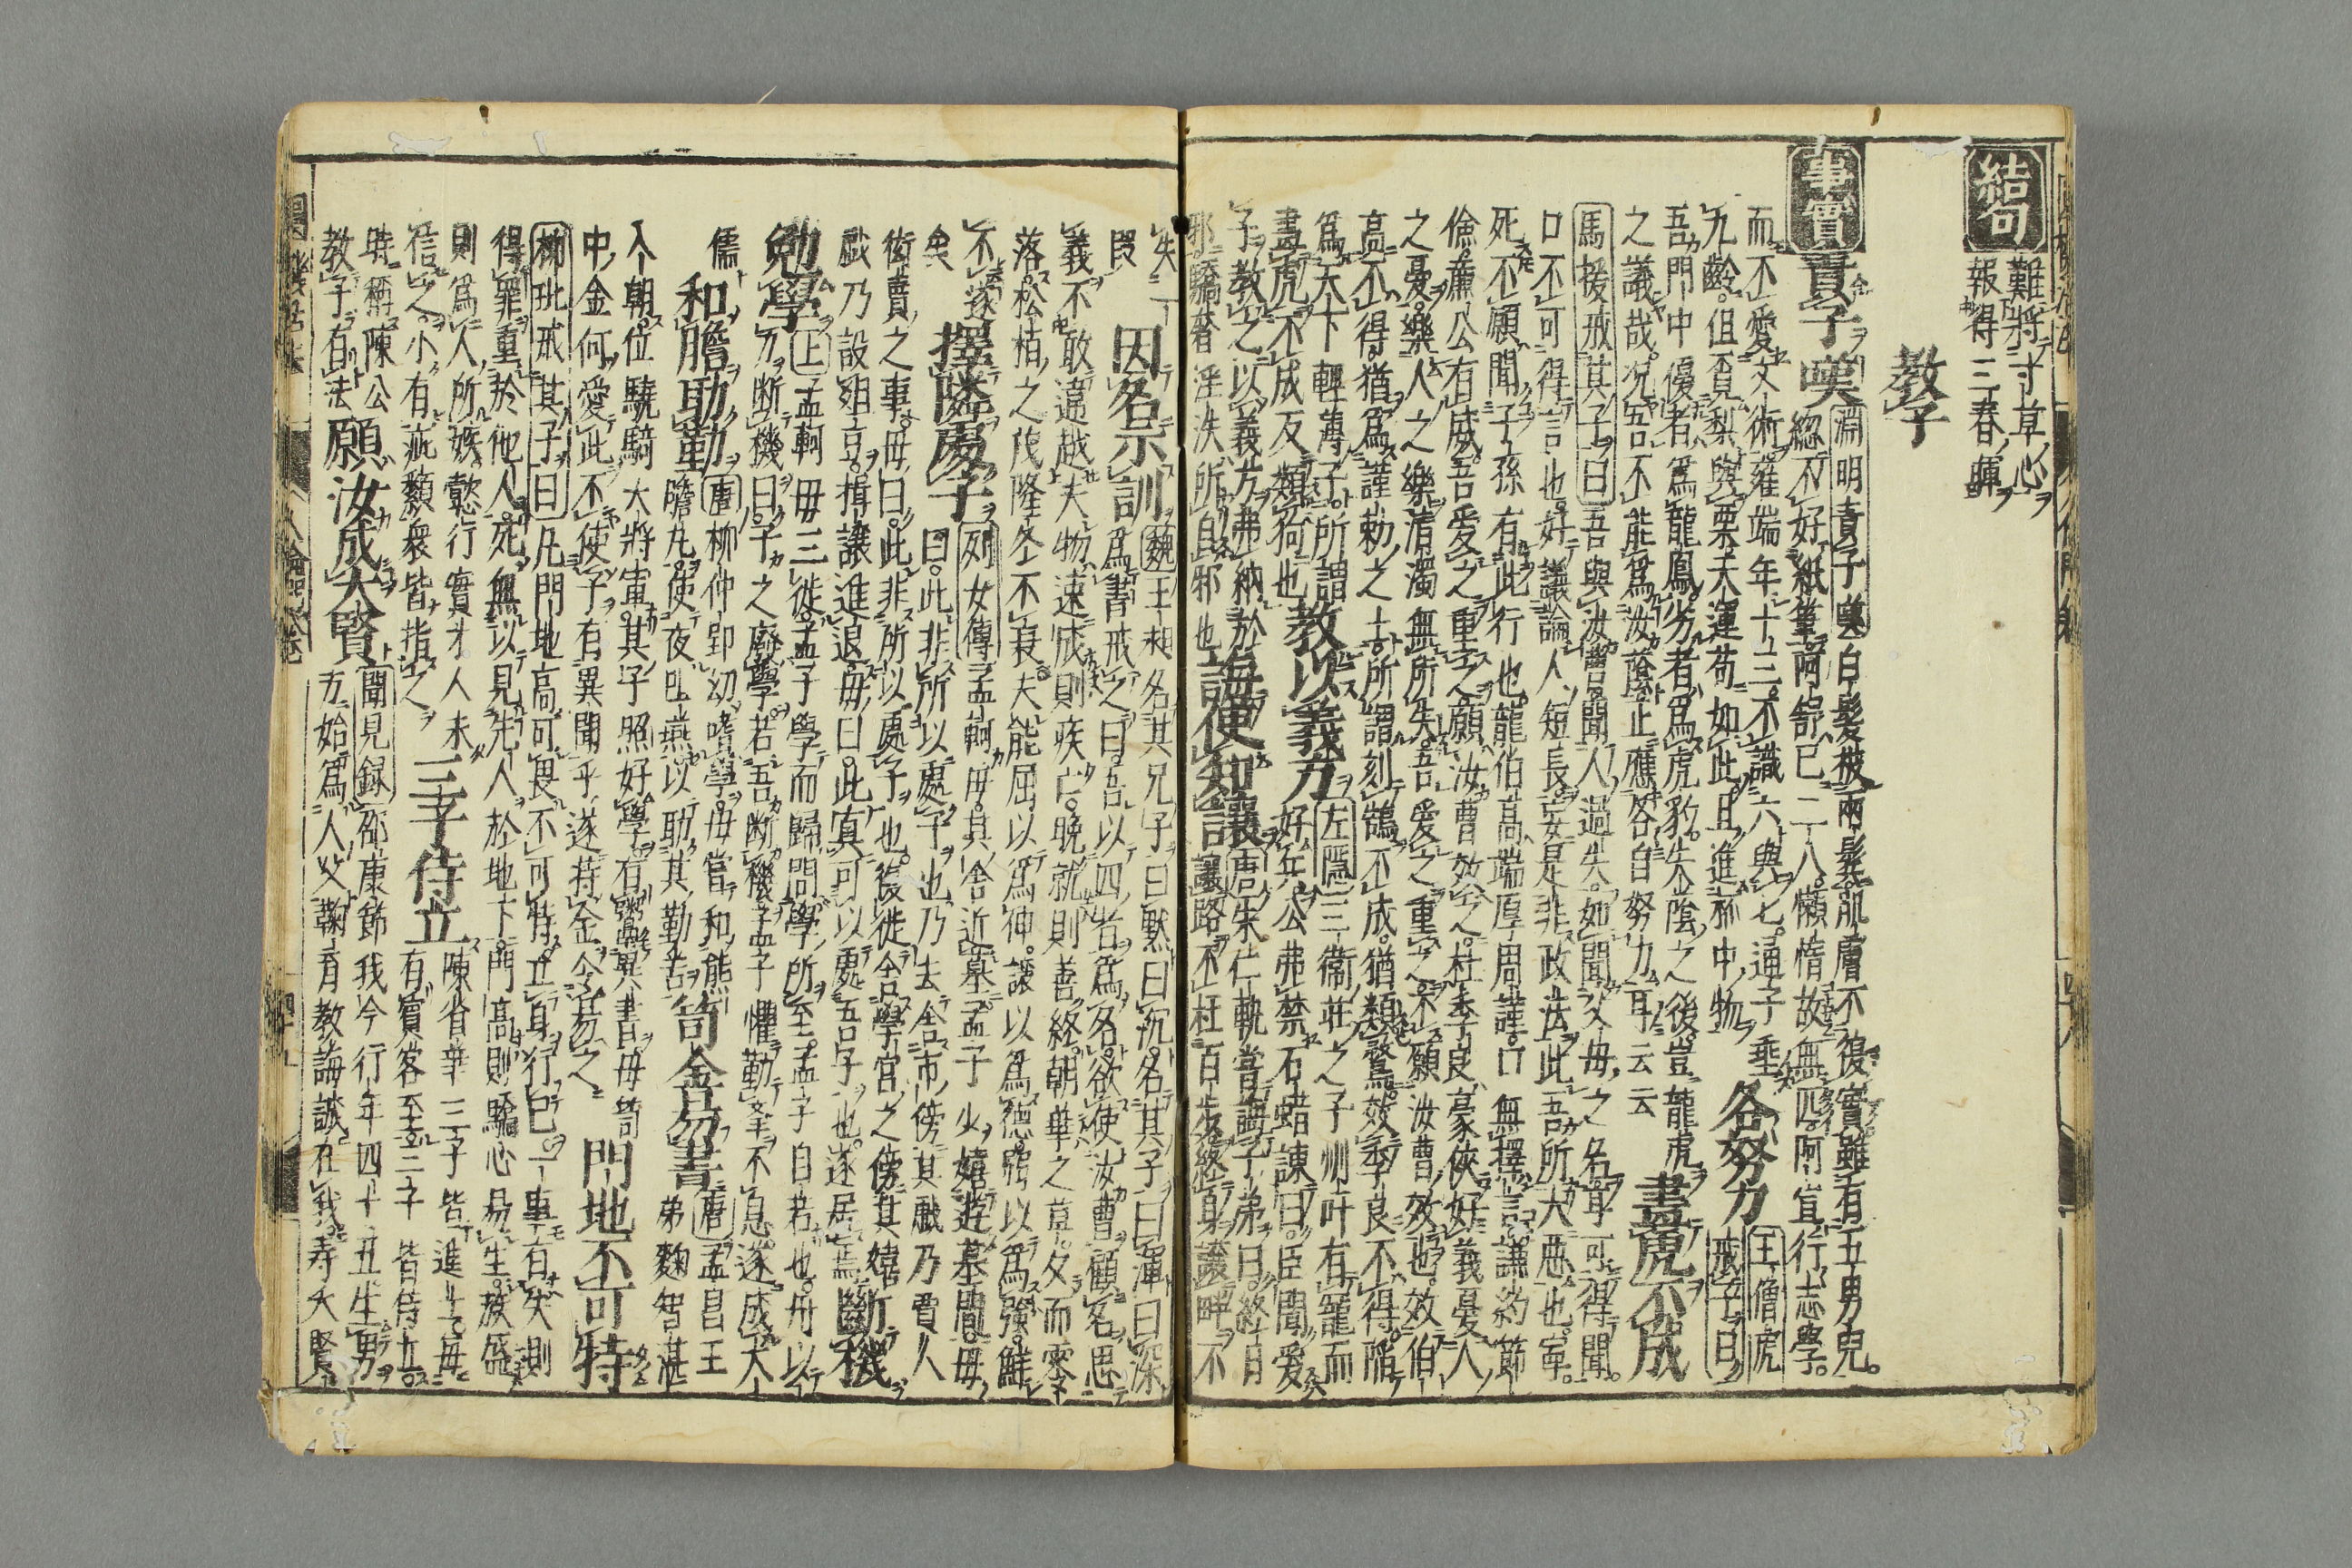 結句
難將寸草心
報得三春暉
教子
事實
責子嘆
淵明責子嘆白髮被兩鬢肌膚不復實雖有五男兒
緫不好紙筆阿舒已二八懶惰故無匹阿宣行志學
而不愛文術雍端年十三不識六與七通子垂
九齡但覓梨與栗天運苟如此且進杯中物
各努力
王僧虔
戒子曰
吾門中優者爲龍鳳劣者爲虎豹失蔭之後豈龍虎
之議哉况吾不能爲汝蔭止應各自努力耳云云
畫虎不成
馬援戒其子曰吾與汝曹聞人過失如聞父母之名耳可得聞
口不可得言也好議論人短長妄是非政法此吾所大惡也寧
死不願聞子孫有此行也龍伯高端厚周謹口無擇言謙約節
儉廉公有威吾愛之重之願汝曹效之杜季良豪俠好義憂人
之憂樂人之樂清濁無所失吾愛之重之不願汝曹效也效伯
高不得猶爲謹勅之士所謂刻鵠不成猶類鶩效季良不得陷
爲天下輕薄子所謂
畫虎不成反類狗也
教以義方
左隱三衛莊之子州吁有寵而
好兵公弗禁石蜡諫曰臣聞愛
子教之以義方弗納於
邪驕奢淫泆所自邪也
誨使知讓
唐朱仁軌嘗誨子弟曰終身
讓路不枉百步終身讓畔不
失一
段
因名示訓
魏王昶名其兄子曰默曰沉名其子曰渾曰深
爲書戒之曰吾以四者爲名欲使汝曹顧名思
義不敢違越夫物速成則疾亡晚就則善終朝華之草夕而零
落松栢之茂隆冬不衰夫能屈以爲伸讓以爲德弱以爲強鮮
不遂
矣
擇隣處子
列女傳孟軻母其舍近墓孟子少嬉遊墓間母
曰此非所以處子也乃去舍市傍其戲乃賈人
衒賣之事母曰此非所以處子也復徙舍學宮之傍其嬉
戯乃設俎豆揖讓進退母曰此真可以處吾子也遂居焉
斷機
勉學
上孟軻母三徙孟子學而歸問學所至孟子自若也母以
刀断機曰子之廢學若吾断機孟子懼勤孳不息遂成大
儒
和膽助勤
唐柳仲郢幼嗜學母嘗和熊
膽丸使夜咀嚥以助其勤苦
笥金易書
唐孟昌王
弟麴智湛
入朝位驍騎大將軍其子照好學有鬻異書母笥
中金何愛此不使子有異聞乎遂持金令易之
門地不可恃
柳玭戒其子曰凡門地高可畏不可恃立身行己一事有失則
得罪重於他人死無以見先人於地下門高則驕心易生族盛
則爲人所嫉懿行實才人未
信之小有疵纇衆皆指之
三子侍立
陳省華三子皆進士每
有賓客至三子皆侍立
時稱陳公
教子有法
願汝成大賢
聞見録邵康節我今行年四十五生男
方始爲人父鞠育教誨誠在我壽夭賢